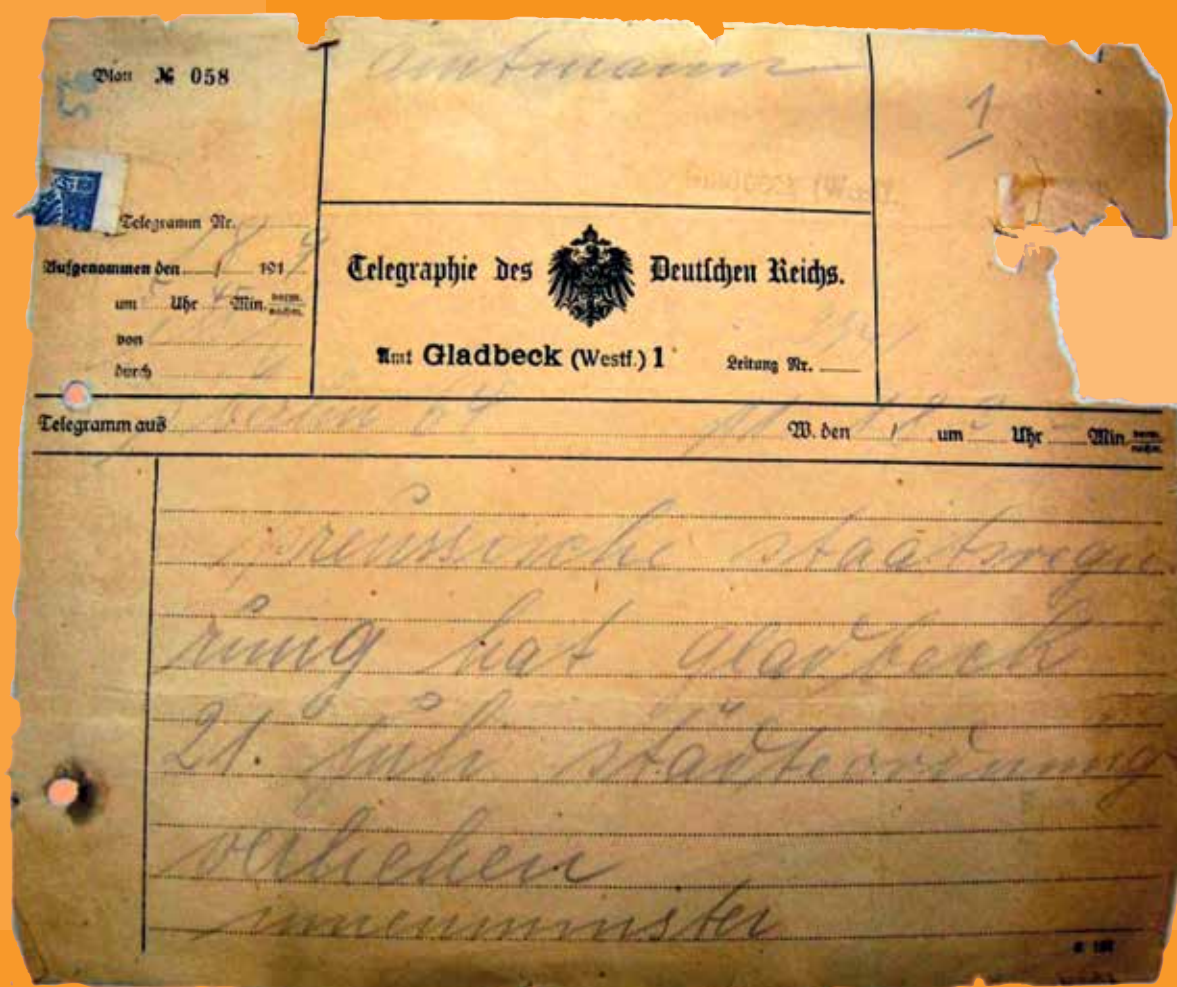 Blatt № 058
amtmann
1
Telegramm Nr.
Aufgenommen den 1/8 1919
um 5 Uhr 45 Min. vorm. nachm.
von
durch
Telegraphie des Deutschen Reichs.
Amt Gladbeck (Westf.) 1
Leitung Nr.
Telegramm aus berlin 64 W. den / um Uhr Min. vorm. nachm.
preussische staatsregie
rung hat gladbeck
21. juli städteordnung
verliehen
innenminster